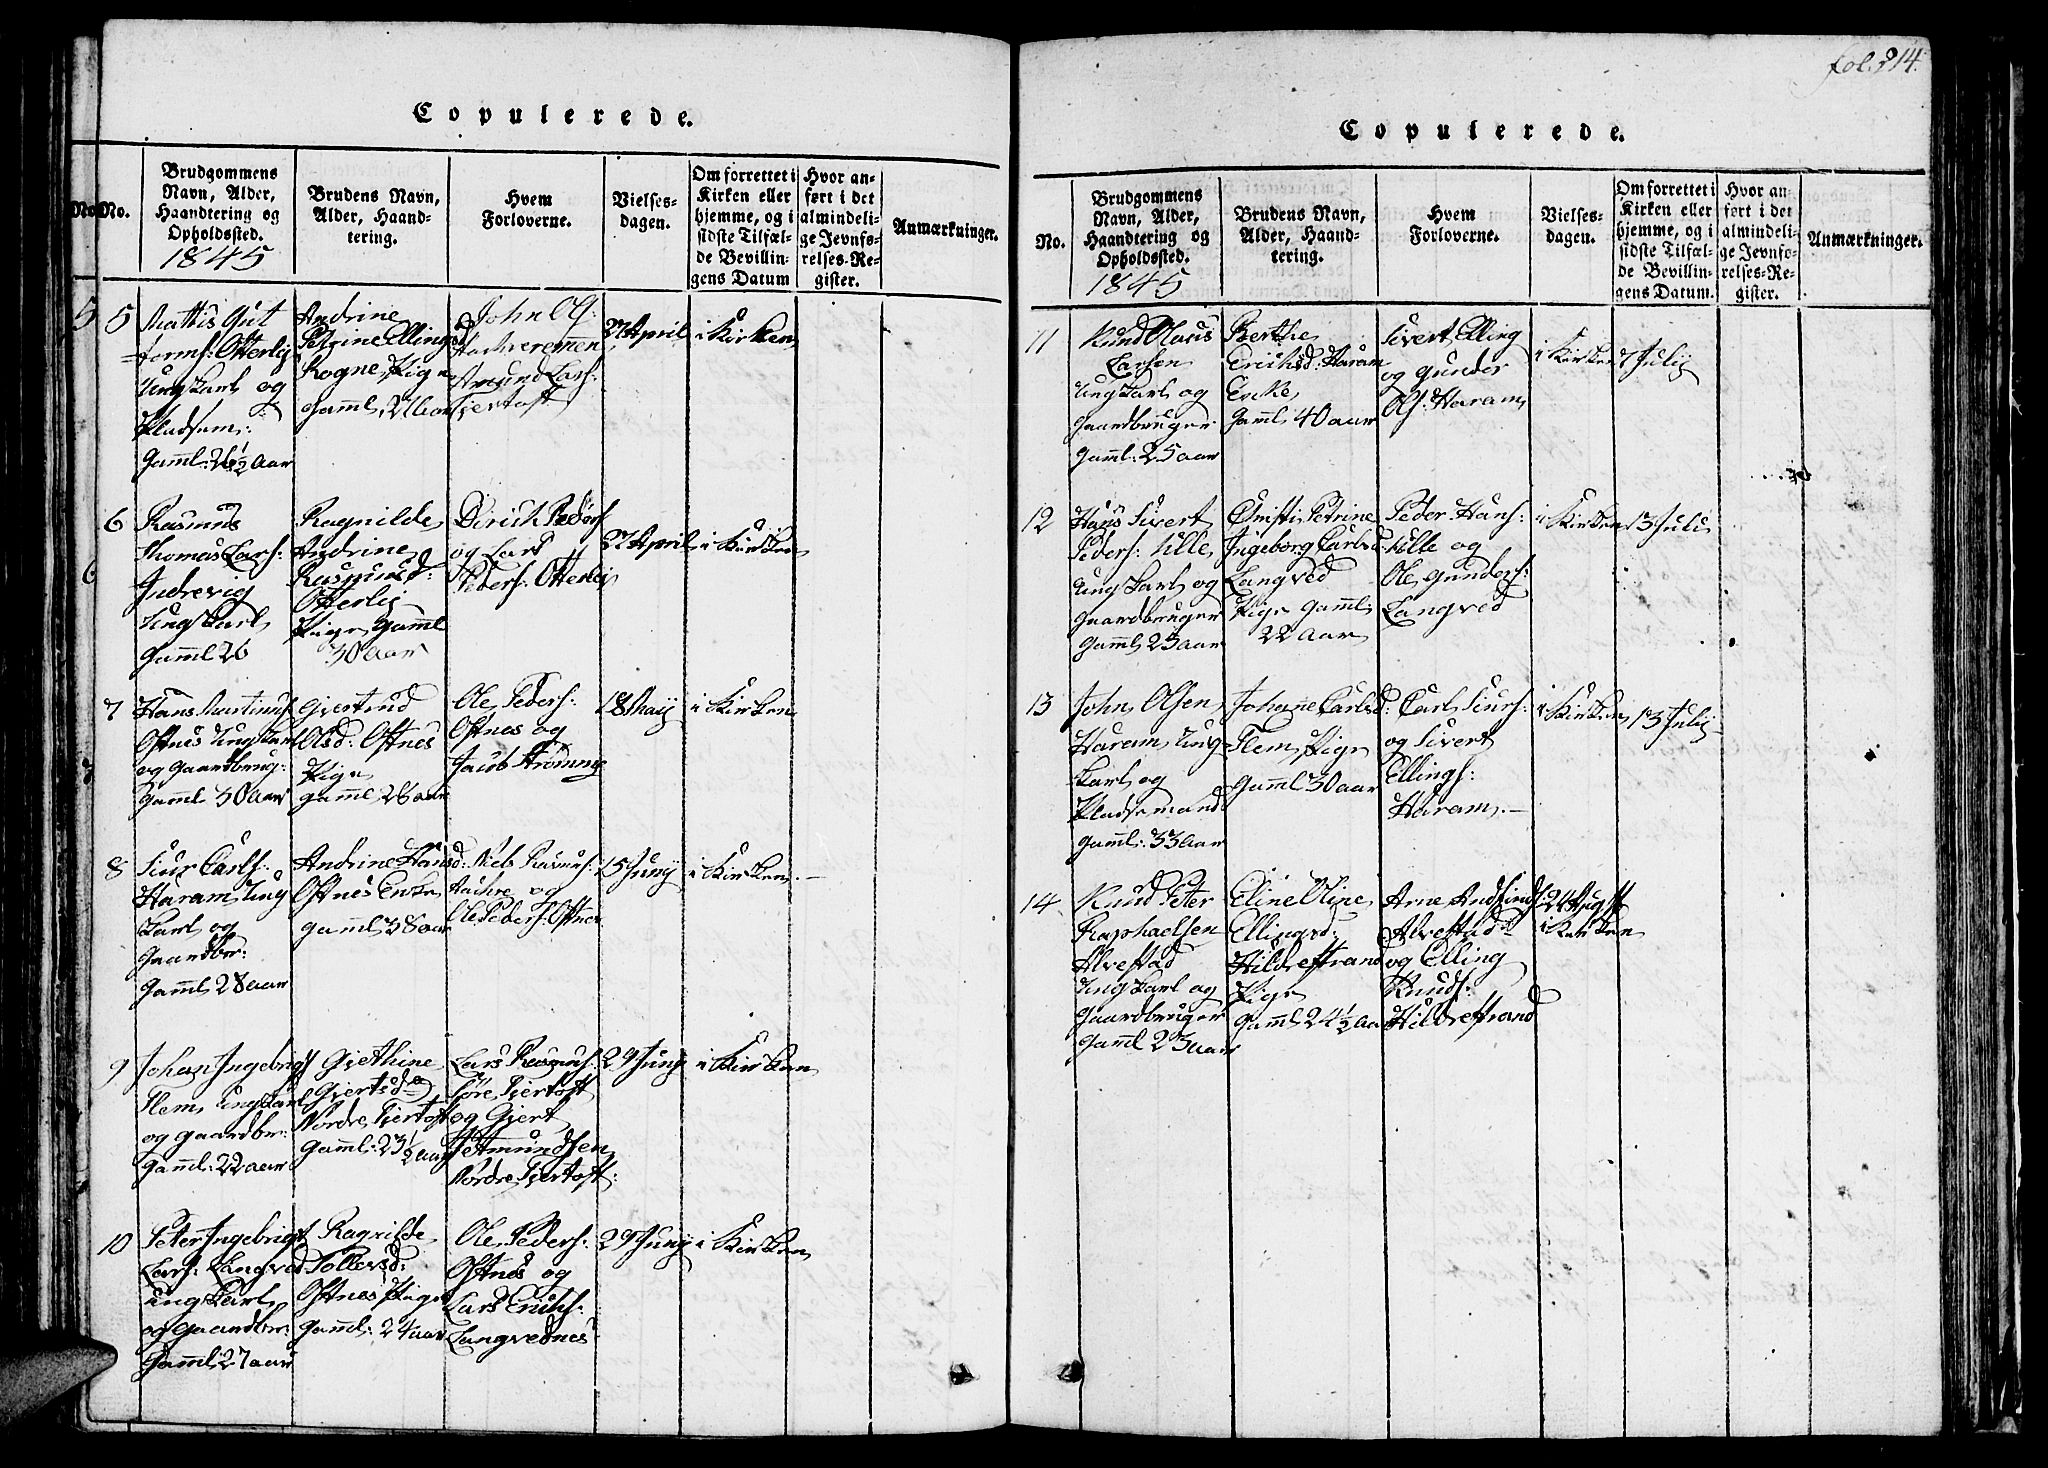 Copulerede.
No. No.
Brudgommens
Navn, Alder,
Haandtering og
Opholdssted.
1845
Brudens Navn,
Alder, Haand-
tering.
Hvem
Forloverne.
Vielses-
dagen.
Om forrettet i
Kirken eller
hjemme, og i
sidste Tilfæl-
de Bevillin-
gens Datum
Hvor an-
ført i det
almindeli-
ge Jevnfø-
relses-Re-
gister.
Anmærkninger.
5 5
Mattis Gut
forms: Otterlej
Ungkarl og
Pladsem:
Gaml: 26½ Aar
Andrine
Petrine Ellingsd
Rogne, Pige
Gaml, 21 Aar
John Ols:
Amund Lars:
Fjertoft
27 April
i Kirken
6
6
Rasmus
Thomas Lars:
Indrevig
Ungkarl
Gaml 26
Ragnilde
Andrine
Rasmusd:
Otterlej
Pige Gaml
30 aar
Dirich Peders
og Lars
Peders: Otterlej
27 April
i Kirken
7
7
Hans Martinus
Oftnes Ungkarl
og Gaardbrug:
Gaml 30 Aar
Gjertrud
Olsd: Oftnes
Pige
Gaml 26 aar
Ole Peders:
Oftnes og
Jacob Strømme
18 Maij
i Kirken
8
Siur Carls:
Haram, Ung
karl og
Gaardbr:
Gaml 28 aar
Andrine Hansd:
Oftnes Enke
Gaml 38 aar
Niels Rasmus:
Aachre og
Ole Peders: Oftnes
15 Junij
i Kirken
9
Johan Ingebrigs
Flem, Ungkarl
og Gaardbr:
Gaml: 22 aar
Gjethine
Gjertsd
Nordre Fjertoft
Gaml: 23½ aar
Lars Rasmus:
Søre Fjertoft
og Gjert
Amundsen
Nordre Fjertoft:
29 Junij
i Kirken
10
Peter Ingebrigt
Lars: Langved
Ungkarl
og Gaardbr:
Gaml: 27 aar
Ragnilde
Tollevsd:
Oftnes Pige
Gaml: 24 aar
Ole Peders:
Oftnes og
Lars Erichs:
Langvednes
29 Junij
i Kirken
fol. 214.
Copulerede.
No.
Brudgommens
Navn, Alder,
Haandtering og
Opholdssted.
1845
Brudens Navn,
Alder, Haand-
tering.
Hvem
Forloverne.
Vielses-
dagen.
Om forrettet i
Kirken eller
hjemme, og i
sidste Tilfæl-
de Bevillin-
gens Datum.
Hvor an-
ført i det
almindeli-
ge Jevnfø-
relses-Re-
gister.
Anmærkninger.
11
Knud Olaus
Larsen
Ungkarl og
Gaardbruger
Gaml: 25 aar
Berthe
Erichsd: Haram
Enke
Gaml 40 aar
Sivert Elling
og Gunder
Ols: Haram
i Kirken
7 Julij
12
Hans Sivert
Peders: Ulle
Ungkarl og
Gaardbruger
Gaml 23 aar
Christi Petrine
Ingeborg Carlsd:
Langved
Pige Gaml
22 Aar
Peder Hans:
Ulle og
Ole Gunders:
Langved
i Kirken
13 Juli
13
John Olsen
Haram, Ung
karl og
Pladsemand
Gaml: 33 Aar
Johane Carlsd:
Flem, Pige
Gaml 30 aar
Carl Siurs:
og Sivert
Ellings:
Haram.
i Kirken
13 Julij
14
Knud Peter
Raphaelsen
Alvestad
Ungkarl og
Gaardbruger
Gaml 23 aar
Eline Oline
Ellingsd:
Hildrestrand
Pige
Gaml 24½ Aar
Arne Knudsens
Alvestad
og Elling
Knuds:
Hildrestrand
24 August
i Kirken